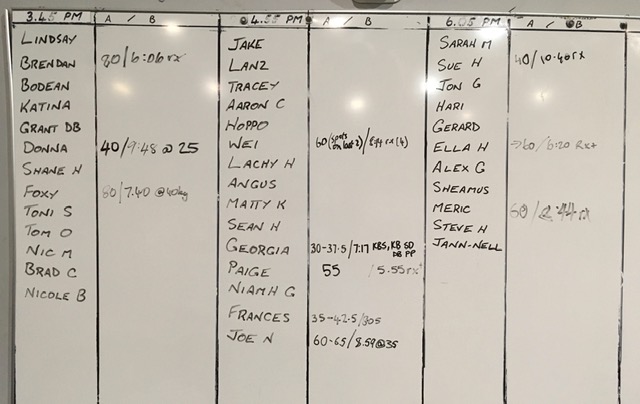 3.45 PM A / B
LINDSAY
BRENDAN 80/6:06 rx
BODEAN
KATINA
GRANT DB
DONNA 40/9:48 @ 25
SHANE H
FOXY 80/7.40 @40kg
TONI S
TOM O
NIC M
BRAD C
NICOLE B
4.55 PM A / B
JAKE
LANZ
TRACEY
AARON C
HOPPO
WEI 60 (spots on last 2)/8:44 rx (4)
LACHY H
ANGUS
MATTY K
SEAN H
GEORGIA 30-37.5/7:17 KBS, KB SD
DB PP
PAIGE 55 / 5.55 rx+
NIAMH G
FRANCES 35-42.5/
JOE N 60-65/8.59@35
6.05 PM A / B
SARAH M
SUE H 40/10.40 rx
JON G
HARI
GERARD
ELLA H →60/6:20 Rx+
ALEX G
SHEAMUS
MERIC 60/ :44 rx
STEVE H
JANN-NELL